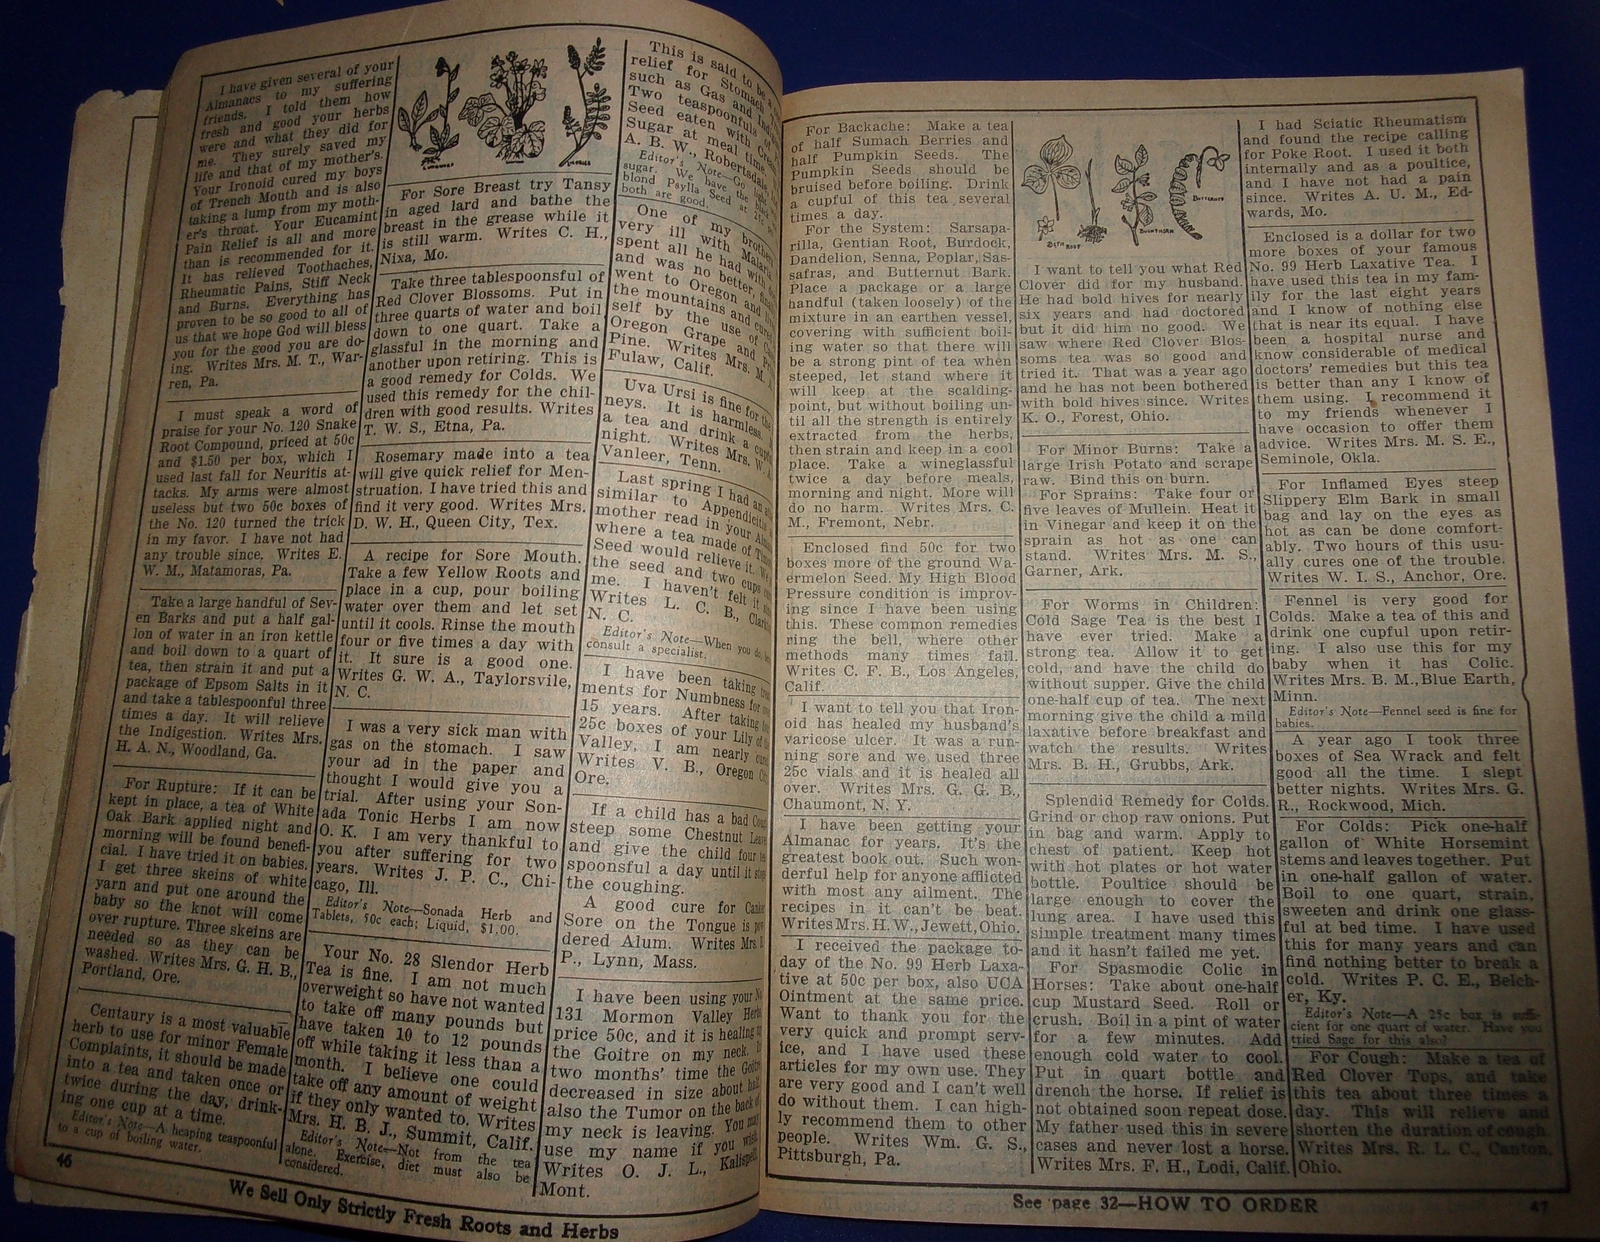 I have given several of your
Almanacs to my suffering
friends. I told them how
fresh and good your herbs
were and what they did for
me. They surely saved my
life and that of my mother's.
Your Ironoid cured my boys
of Trench Mouth and is also
taking a lump from my moth-
er's throat. Your Eucamint
Pain Relief is all and more
than is recommended for it.
It has relieved Toothaches,
Rheumatic Pains, Stiff Neck
and Burns. Everything has
proven to be so good to all of
us that we hope God will bless
you for the good you are do-
ing. Writes Mrs. M. T., War-
ren, Pa.
I must speak a word of
praise for your No. 120 Snake
Root Compound, priced at 50c
and $1.50 per box, which I
used last fall for Neuritis at-
tacks. My arms were almost
useless but two 50c boxes of
the No. 120 turned the trick
in my favor. I have not had
any trouble since. Writes E.
W. M., Matamoras, Pa.
Take a large handful of Sev-
en Barks and put a half gal-
lon of water in an iron kettle
and boil down to a quart of
tea, then strain it and put a
package of Epsom Salts in it
and take a tablespoonful three
times a day. It will relieve
the Indigestion. Writes Mrs.
H. A. N., Woodland, Ga.
For Rupture: If it can be
kept in place, a tea of White
Oak Bark applied night and
morning will be found benefi-
cial. I have tried it on babies.
I get three skeins of white
yarn and put one around the
baby so the knot will come
over rupture. Three skeins are
needed so as they can be
washed. Writes Mrs. G. H. B.,
Portland, Ore.
Centaury is a most valuable
herb to use for minor Female
Complaints, it should be made
into a tea and taken once or
twice during the day, drink-
ing one cup at a time.
Editor's Note—A heaping teaspoonful
to a cup of boiling water.
46
For Sore Breast try Tansy
in aged lard and bathe the
breast in the grease while it
is still warm. Writes C. H.,
Nixa, Mo.
Take three tablespoonsful of
Red Clover Blossoms. Put in
three quarts of water and boil
down to one quart. Take a
glassful in the morning and
another upon retiring. This is
a good remedy for Colds. We
used this remedy for the chil-
dren with good results. Writes
T. W. S., Etna, Pa.
Rosemary made into a tea
will give quick relief for Men-
struation. I have tried this and
find it very good. Writes Mrs.
D. W. H., Queen City, Tex.
A recipe for Sore Mouth.
Take a few Yellow Roots and
place in a cup, pour boiling
water over them and let set
until it cools. Rinse the mouth
four or five times a day with
it. It sure is a good one.
Writes G. W. A., Taylorsvile,
N. C.
I was a very sick man with
gas on the stomach. I saw
your ad in the paper and
thought I would give you a
trial. After using your Son-
ada Tonic Herbs I am now
O. K. I am very thankful to
you after suffering for two
years. Writes J. P. C., Chi-
cago, Ill.
Editor's Note—Sonada Herb and
Tablets, 50c each; Liquid, $1.00.
Your No. 28 Slendor Herb
Tea is fine. I am not much
overweight so have not wanted
to take off many pounds but
have taken 10 to 12 pounds
off while taking it less than a
month. I believe one could
take off any amount of weight
if they only wanted to. Writes
Mrs. H. B. J., Summit, Calif.
Editor's Note—Not from the tea
alone. Exercise, diet must also be
considered.
This is said to be a
relief for Stomach
such as Gas and
Two teaspoonfuls of
Seed eaten with
Sugar at meal time.
A. B. W., Robertsdale,
Editor's Note—Go
sugar. We have the
blond Psylla Seed at
both are good.
One of my brothers
very ill with Malaria
spent all he had with
and was no better,
went to Oregon and
the mountains and cured
self by the use of
Oregon Grape and
Pine. Writes Mrs. M.
Fulaw, Calif.
Uva Ursi is fine for the
neys. It is harmless.
a tea and drink a
night. Writes Mrs. W.
Vanleer, Tenn.
Last spring I had an
similar to Appendicitis
mother read in your
where a tea made of
Seed would relieve it.
the seed and two cups
me. I haven't felt it
Writes L. C. B.,
N. C.
Editor's Note—When you do,
consult a specialist.
I have been taking
ments for Numbness for
15 years. After taking
25c boxes of your Lily of
Valley, I am nearly
Writes V. B., Oregon
Ore.
If a child has a bad
steep some Chestnut
and give the child four
spoonsful a day until it
the coughing.
A good cure for
Sore on the Tongue is
dered Alum. Writes Mrs.
P., Lynn, Mass.
I have been using your
131 Mormon Valley
price 50c, and it is healing
the Goitre on my neck.
two months' time the
decreased in size about
also the Tumor on the back of
my neck is leaving. You may
use my name if you wish.
Writes O. J. L., Kalispell,
Mont.
We Sell Only Strictly Fresh Roots and Herbs
For Backache: Make a tea
of half Sumach Berries and
half Pumpkin Seeds. The
Pumpkin Seeds should be
bruised before boiling. Drink
a cupful of this tea several
times a day.
For the System: Sarsapa-
rilla, Gentian Root, Burdock,
Dandelion, Senna, Poplar, Sas-
safras, and Butternut Bark.
Place a package or a large
handful (taken loosely) of the
mixture in an earthen vessel,
covering with sufficient boil-
ing water so that there will
be a strong pint of tea when
steeped, let stand where it
will keep at the scalding-
point, but without boiling un-
til all the strength is entirely
extracted from the herbs,
then strain and keep in a cool
place. Take a wineglassful
twice a day before meals,
morning and night. More will
do no harm. Writes Mrs. C.
M., Fremont, Nebr.
Enclosed find 50c for two
boxes more of the ground Wa-
ermelon Seed. My High Blood
Pressure condition is improv-
ing since I have been using
this. These common remedies
ring the bell, where other
methods many times fail.
Writes C. F. B., Los Angeles,
Calif.
I want to tell you that Iron-
oid has healed my husband's
varicose ulcer. It was a run-
ning sore and we used three
25c vials and it is healed all
over. Writes Mrs. G. G. B.,
Chaumont, N. Y.
I have been getting your
Almanac for years. It's the
greatest book out. Such won-
derful help for anyone afflicted
with most any ailment. The
recipes in it can't be beat.
Writes Mrs. H. W., Jewett, Ohio.
I received the package to-
day of the No. 99 Herb Laxa-
tive at 50c per box, also UCA
Ointment at the same price.
Want to thank you for the
very quick and prompt serv-
ice, and I have used these
articles for my own use. They
are very good and I can't well
do without them. I can high-
ly recommend them to other
people. Writes Wm. G. S.,
Pittsburgh, Pa.
BETH ROOT
BUCKTHORN
BUTTERNUT
I want to tell you what Red
Clover did for my husband.
He had bold hives for nearly
six years and had doctored
but it did him no good. We
saw where Red Clover Blos-
soms tea was so good and
tried it. That was a year ago
and he has not been bothered
with bold hives since. Writes
K. O., Forest, Ohio.
For Minor Burns: Take a
large Irish Potato and scrape
raw. Bind this on burn.
For Sprains: Take four or
five leaves of Mullein. Heat it
in Vinegar and keep it on the
sprain as hot as one can
stand. Writes Mrs. M. S.,
Garner, Ark.
For Worms in Children:
Cold Sage Tea is the best I
have ever tried. Make a
strong tea. Allow it to get
cold, and have the child do
without supper. Give the child
one-half cup of tea. The next
morning give the child a mild
laxative before breakfast and
watch the results. Writes
Mrs. B. H., Grubbs, Ark.
Splendid Remedy for Colds.
Grind or chop raw onions. Put
in bag and warm. Apply to
chest of patient. Keep hot
with hot plates or hot water
bottle. Poultice should be
large enough to cover the
lung area. I have used this
simple treatment many times
and it hasn't failed me yet.
For Spasmodic Colic in
Horses: Take about one-half
cup Mustard Seed. Roll or
crush. Boil in a pint of water
for a few minutes. Add
enough cold water to cool.
Put in quart bottle and
drench the horse. If relief is
not obtained soon repeat dose.
My father used this in severe
cases and never lost a horse.
Writes Mrs. F. H., Lodi, Calif.
I had Sciatic Rheumatism
and found the recipe calling
for Poke Root. I used it both
internally and as a poultice,
and I have not had a pain
since. Writes A. U. M., Ed-
wards, Mo.
Enclosed is a dollar for two
more boxes of your famous
No. 99 Herb Laxative Tea. I
have used this tea in my fam-
ily for the last eight years
and I know of nothing else
that is near its equal. I have
been a hospital nurse and
know considerable of medical
doctors' remedies but this tea
is better than any I know of
them using. I recommend it
to my friends whenever I
have occasion to offer them
advice. Writes Mrs. M. S. E.,
Seminole, Okla.
For Inflamed Eyes steep
Slippery Elm Bark in small
bag and lay on the eyes as
hot as can be done comfort-
ably. Two hours of this usu-
ally cures one of the trouble.
Writes W. I. S., Anchor, Ore.
Fennel is very good for
Colds. Make a tea of this and
drink one cupful upon retir-
ing. I also use this for my
baby when it has Colic.
Writes Mrs. B. M., Blue Earth,
Minn.
Editor's Note—Fennel seed is fine for
babies.
A year ago I took three
boxes of Sea Wrack and felt
good all the time. I slept
better nights. Writes Mrs. G.
R., Rockwood, Mich.
For Colds: Pick one-half
gallon of White Horsemint
stems and leaves together. Put
in one-half gallon of water.
Boil to one quart, strain,
sweeten and drink one glass-
ful at bed time. I have used
this for many years and can
find nothing better to break a
cold. Writes P. C. E., Belch-
er, Ky.
Editor's Note—A 25c box is suffi-
cient for one quart of water. Have you
tried Sage for this also?
For Cough: Make a tea of
Red Clover Tops, and take
this tea about three times a
day. This will relieve and
shorten the duration of cough.
Writes Mrs. R. L. C., Canton,
Ohio.
See page 32—HOW TO ORDER
47